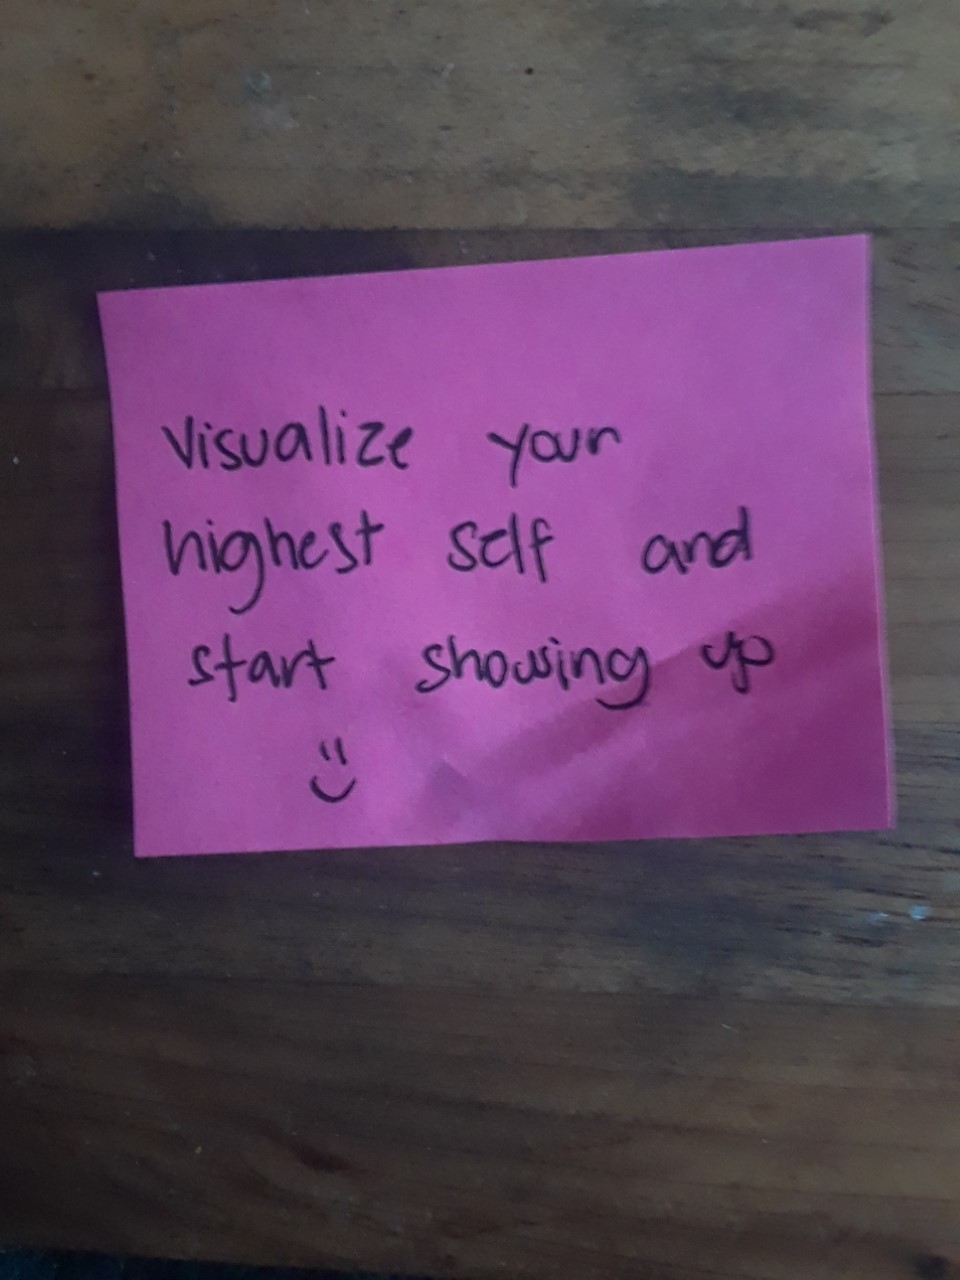 Visualize your
highest self and
start showing up